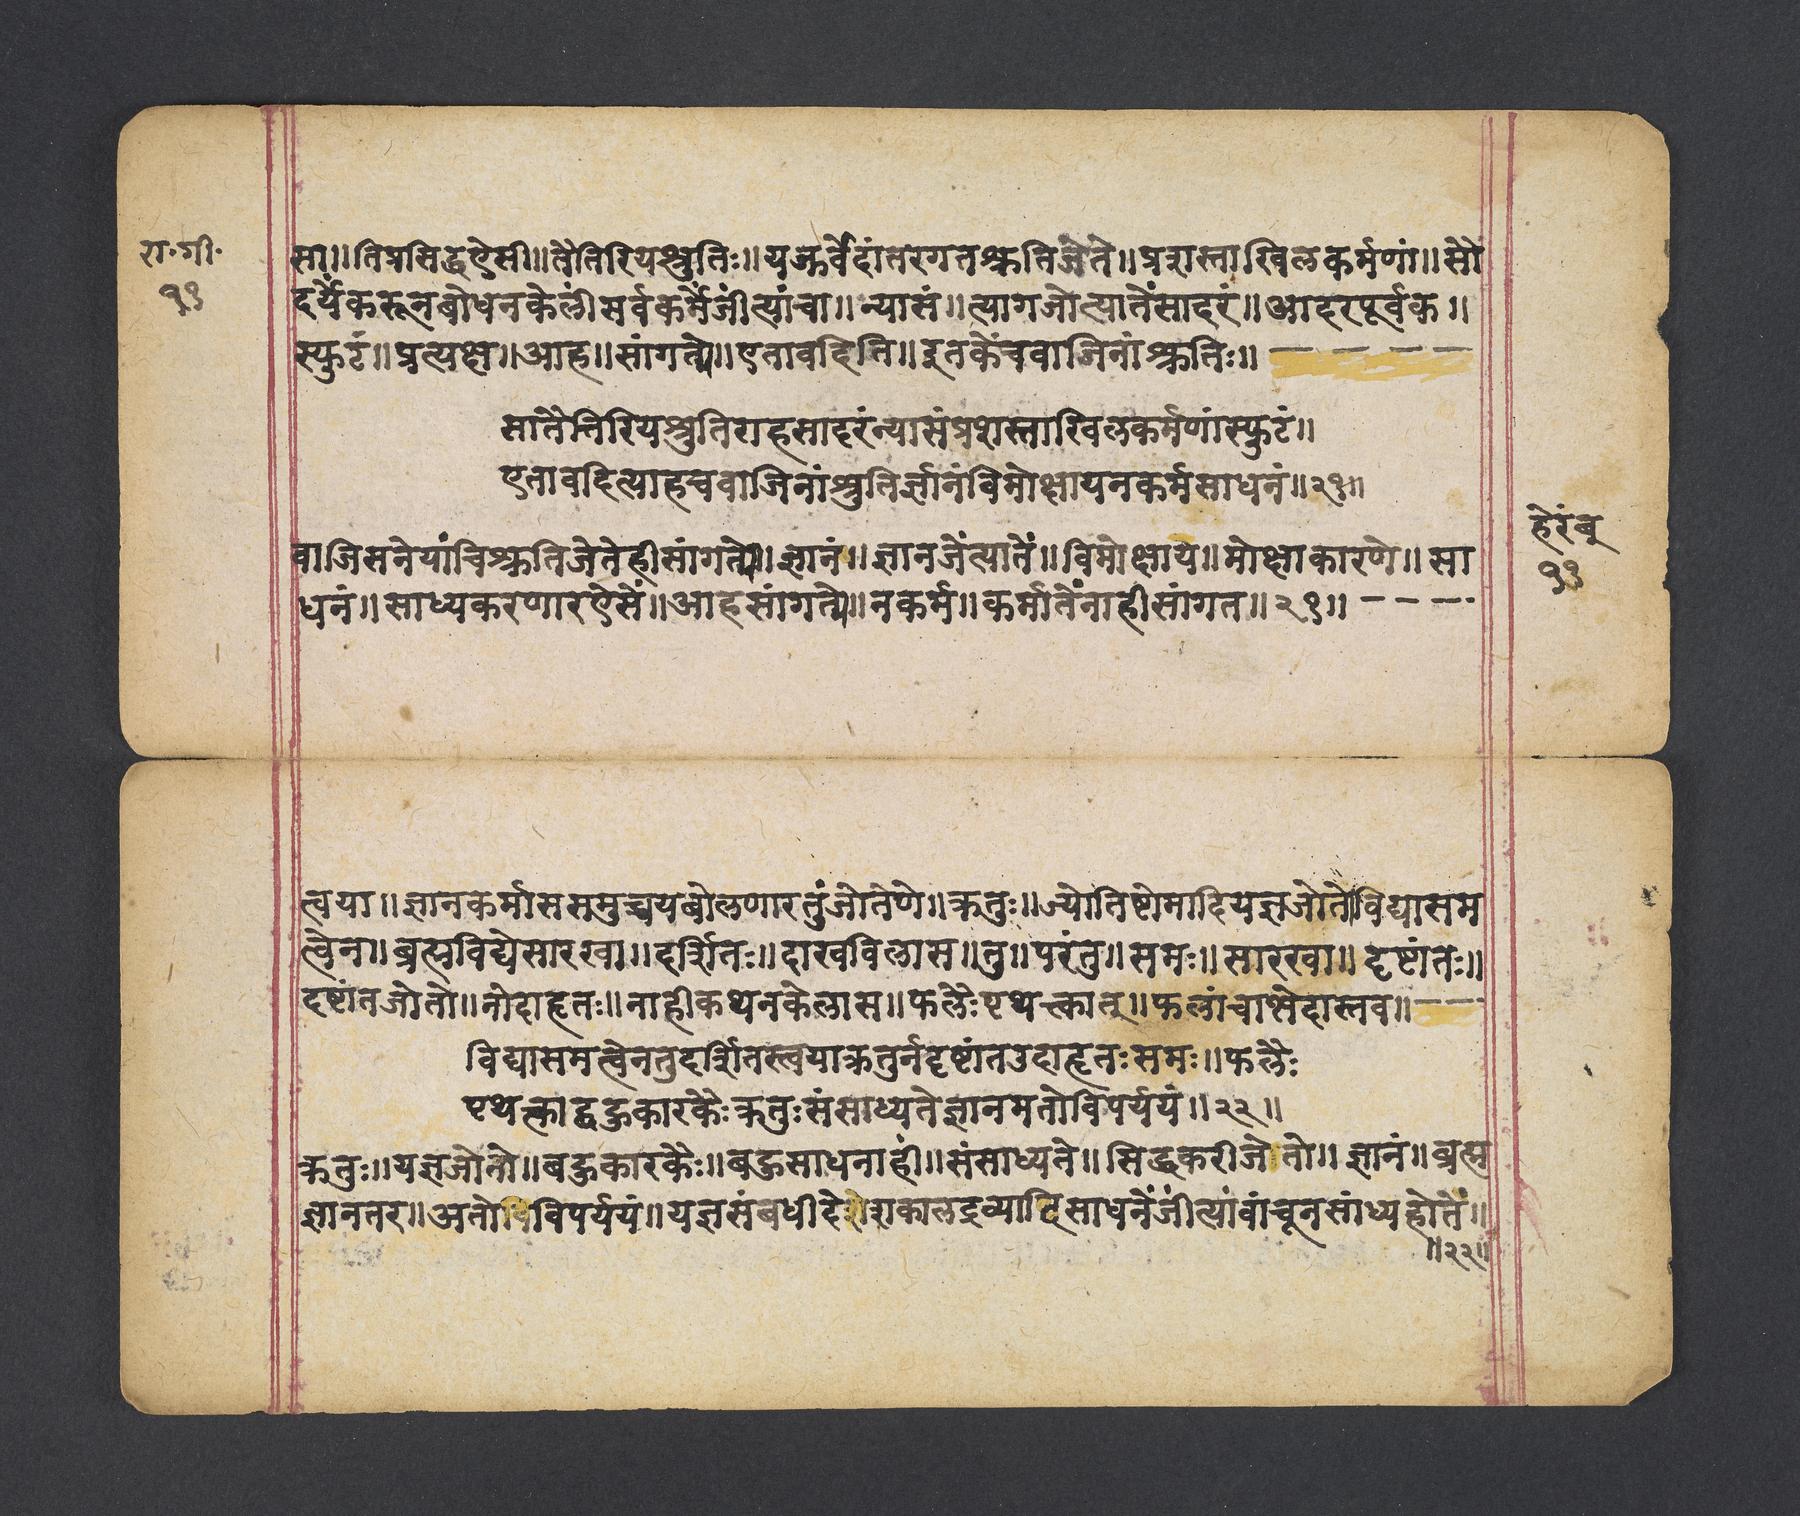 रा॰गी॰
११
सा॥तिप्रसिद्धऐसी॥तैतिरियश्रुतिः॥यजुर्वेदांतरगतश्रुतिजेते॥प्रशस्ताखिलकर्मणां॥सौ
दर्यैकरूनबोधनकेलींसर्वकर्मेंजींत्यांचा॥न्यासं॥त्यागजोत्यातेंसादरं॥आदरपूर्वक॥
स्फुटं॥प्रत्यक्ष॥आह॥सांगत्ये॥एतावदिति॥इतकेंचवाजिनांश्रुतिः॥
सातैत्तिरियश्रुतिराहसादरंन्यासंप्रशस्ताखिलकर्मणांस्फुटं॥
एतावदित्याहचवाजिनांश्रुतिर्ज्ञानंविमोक्षायनकर्मसाधनं॥२१॥
वाजिसनेयांचिश्रुतिजेतेहीसांगत्ये॥ज्ञानं॥ज्ञानजेंत्यातें॥विमोक्षाय॥मोक्षाकारणे॥सा
धनं॥साध्यकरणारऐसें॥आहसांगत्ये॥नकर्म॥कर्मातेंनाहीसांगत॥२१॥
हेरंबु
११
त्वया॥ज्ञानकर्माससमुच्चयबोलणारतुंजोतेणे॥क्रतुः॥ज्योतिष्टोमादियज्ञजोतो॥विद्यासम
त्वेन॥ब्रह्मविद्येसारखा॥दर्शितः॥दाखविलास॥तु॥परंतु॥समः॥सारखा॥दृष्टांतः॥
दृष्टांतजोतो॥नोदाहृतः॥नाहीकथनकेलास॥फलैःपृथत्कात्॥फलांचाभेदास्तव॥
विद्यासमत्वेनतुदर्शितस्त्वयाक्रतुर्नदृष्टांतउदाहृतःसमः॥फलैः
पृथत्काद्बहुकारकैःक्रतुःसंसाध्यतेज्ञानमतोविपर्ययं॥२२॥
क्रतुः॥यज्ञजोतो॥बहुकारकैः॥बहुसाधनाहीं॥संसाध्यते॥सिद्धकरीजेतो॥ज्ञानं॥ब्रह्म
ज्ञानतर॥अतोविविपर्ययं॥यज्ञसंबधीदेशकालद्रव्यादिसाधनेंजींत्यांवांचूनसांध्यहोतें॥
॥२२॥